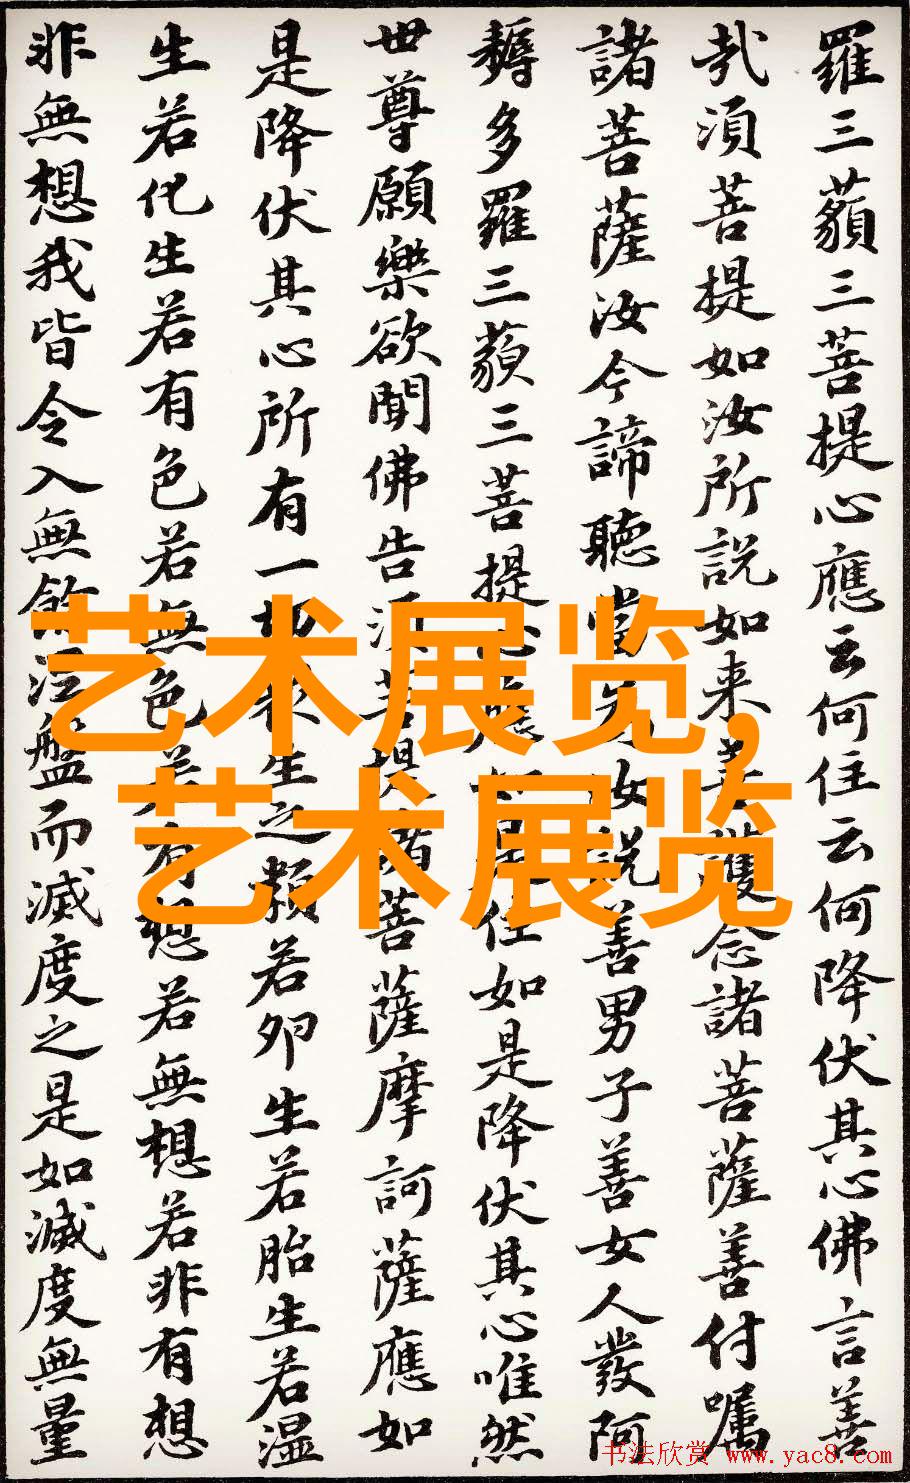 羅三藐三菩提心應云何住云何降伏其心佛言善
哉須菩提如汝所說如来善護念諸菩薩善付囑
諸菩薩汝今諦聽當為汝說善男子善女人發阿
耨多羅三藐三菩提心應如是住如是降伏其心唯然
世尊願樂欲聞佛告須菩提諸菩薩摩訶薩應如
是降伏其心所有一切衆生之類若卵生若胎生若湿
生若化生若有色若無色若有想若無想若非有想
非無想我皆令入無餘涅盤而滅度之是如滅度無量
艺术展览,
艺术展览
书法欣赏 www.yac8.com